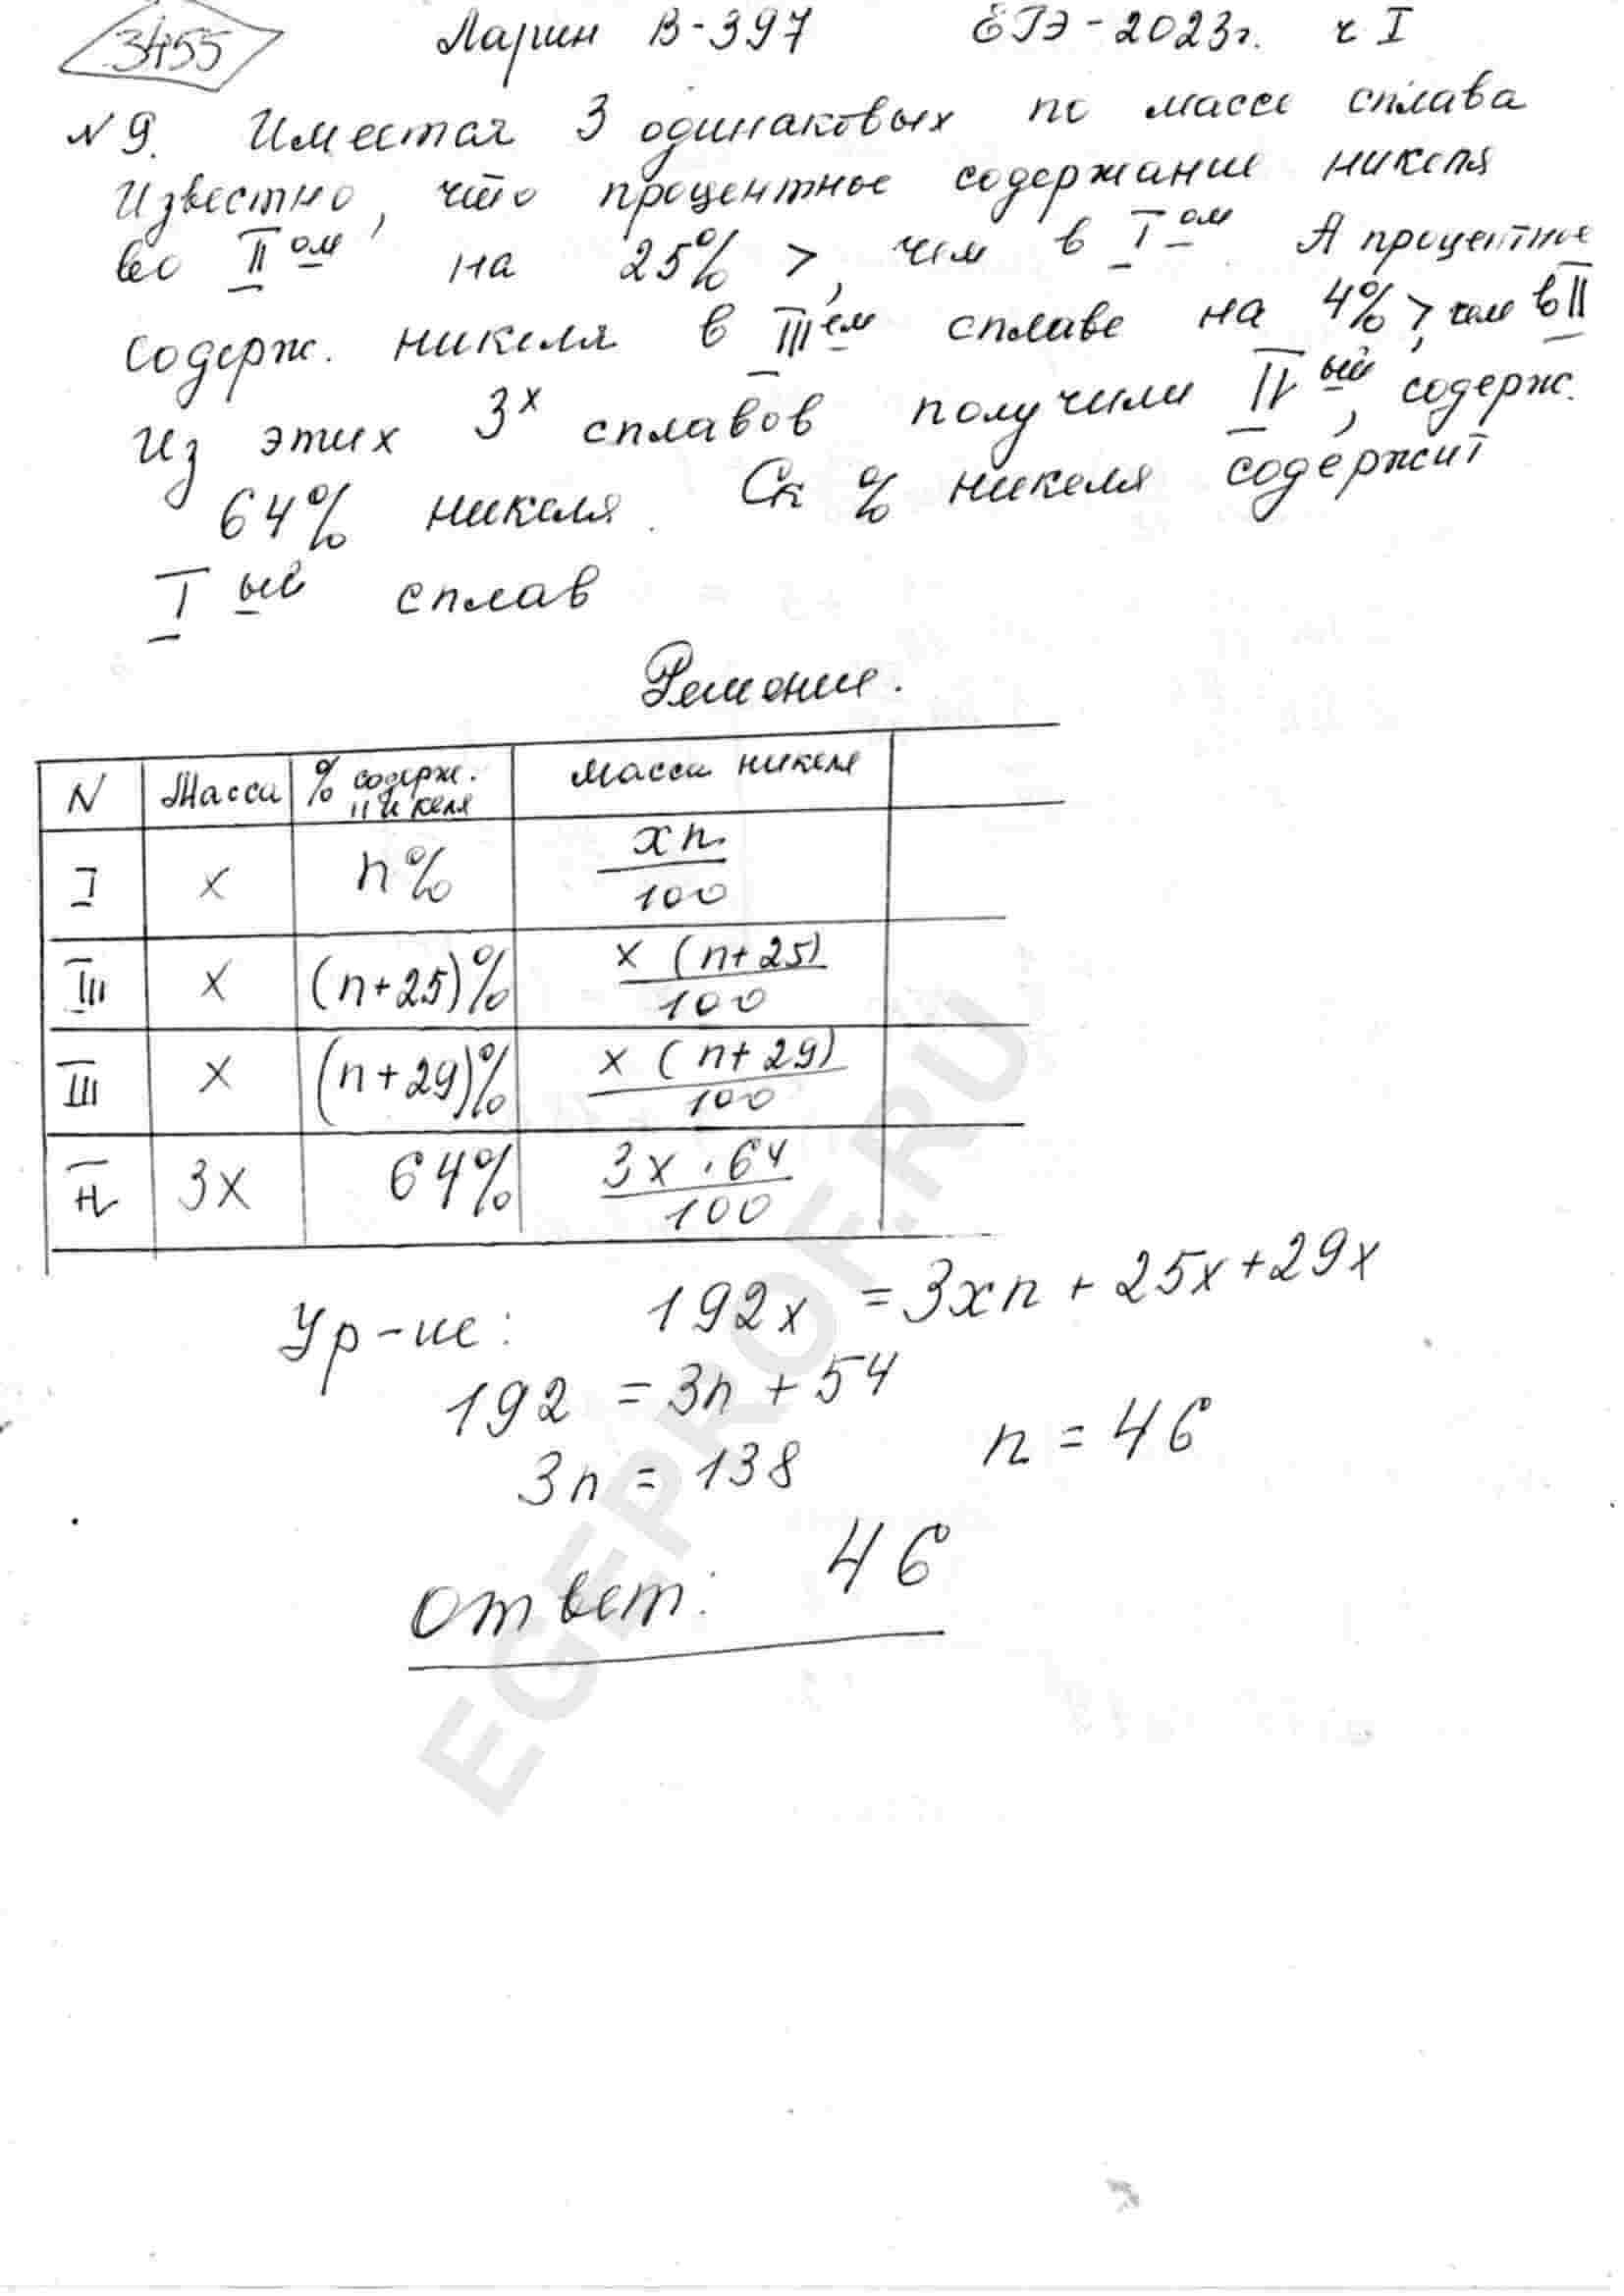 3455 Ларин В-397 ЕГЭ-2023г. ч I
N 9. Имеется 3 одинаковых по массе сплава
Известно, что процентное содержание никеля
во II ом на 25% >, чем в I ом А процентное
содерж. никеля в III ем сплаве на 4% >, чем в II
Из этих 3х сплавов получили IV ый, содерж.
64% никеля. Ск % никеля содержит
I ый сплав
Решение.
N Масса % содерж. никеля Масса никеля
I x n% xn/100
III x (n+25)% x (n+25)/100
III x (n+29)% x (n+29)/100
IV 3x 64% 3x · 64/100
Ур-ие: 192x = 3xn + 25x + 29x
192 = 3n + 54
3n = 138 n = 46
Ответ: 46
EGEPROF.RU